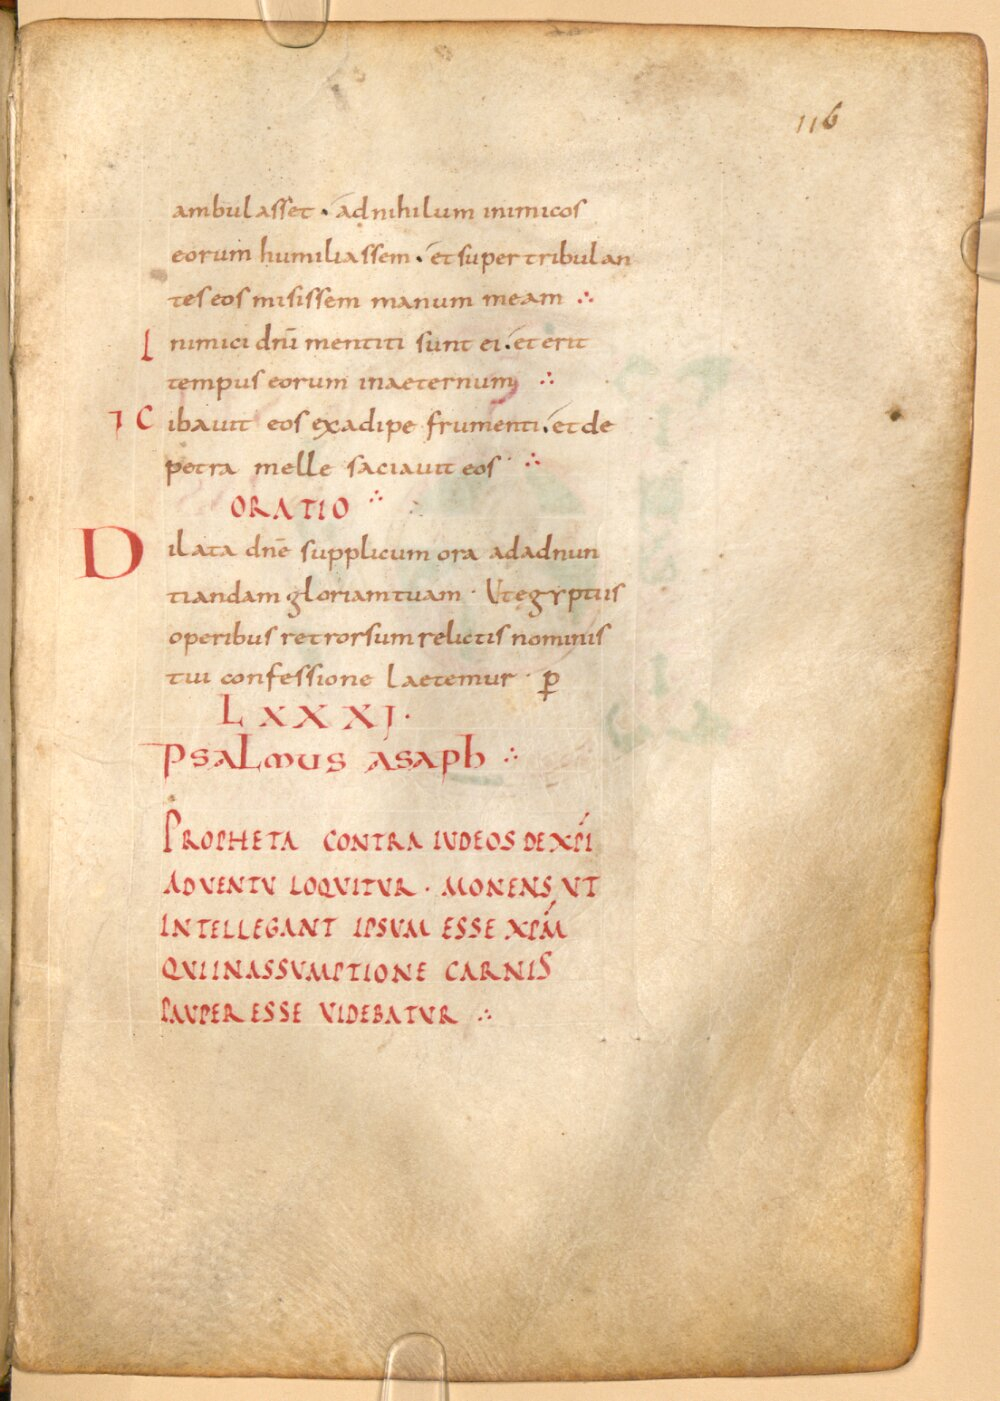 116
ambulasset · ad nihilum inimicos
eorum humiliassem · et super tribulan
tes eos misissem manum meam ∴
Inimici dn̄i mentiti sunt ei · et erit
tempus eorum inaeternum ∴
⁊ Cibauit eos exadipe frumenti · et de
petra melle saciauit eos ∴
ORATIO ∴
Dilata dn̄e supplicum ora adadnun
tiandam gloriam tuam · Ut egyptiis
operibus retrorsum relictis nominis
tui confessione laetemur · p̄
LXXXI ·
Psalmus asaph ∴
PROPHETA CONTRA IUDEOS DE XP̄I
ADVENTV LOQVITVR · MONENS VT
INTELLEGANT IPSVM ESSE XP̄M
QVI IN ASSVMPTIONE CARNIS
PAVPER ESSE VIDEBATVR ∴